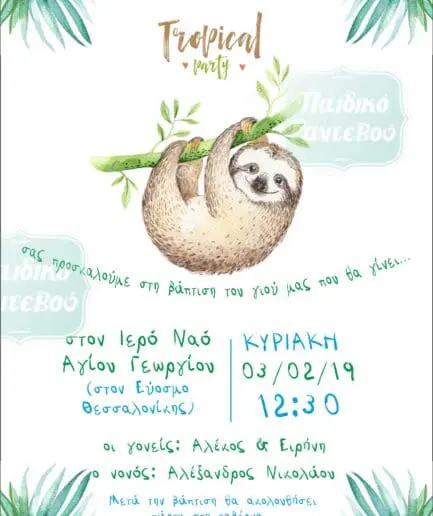 Tropical
party
Παιδικό
αντεβού
σας προσκαλούμε στη βάπτιση του γιού μας που θα γίνει...
αιδικό
ντεβού
στον Ιερό Ναό
Αγίου Γεωργίου
(στον Εύοσμο
Θεσσαλονίκης)
ΚΥΡΙΑΚΗ
03/02/19
12:30
οι γονείς: Αλέκος & Ειρήνη
ο νονός: Αλέξανδρος Νικολάου
Μετά την βάπτιση θα ακολουθήσει